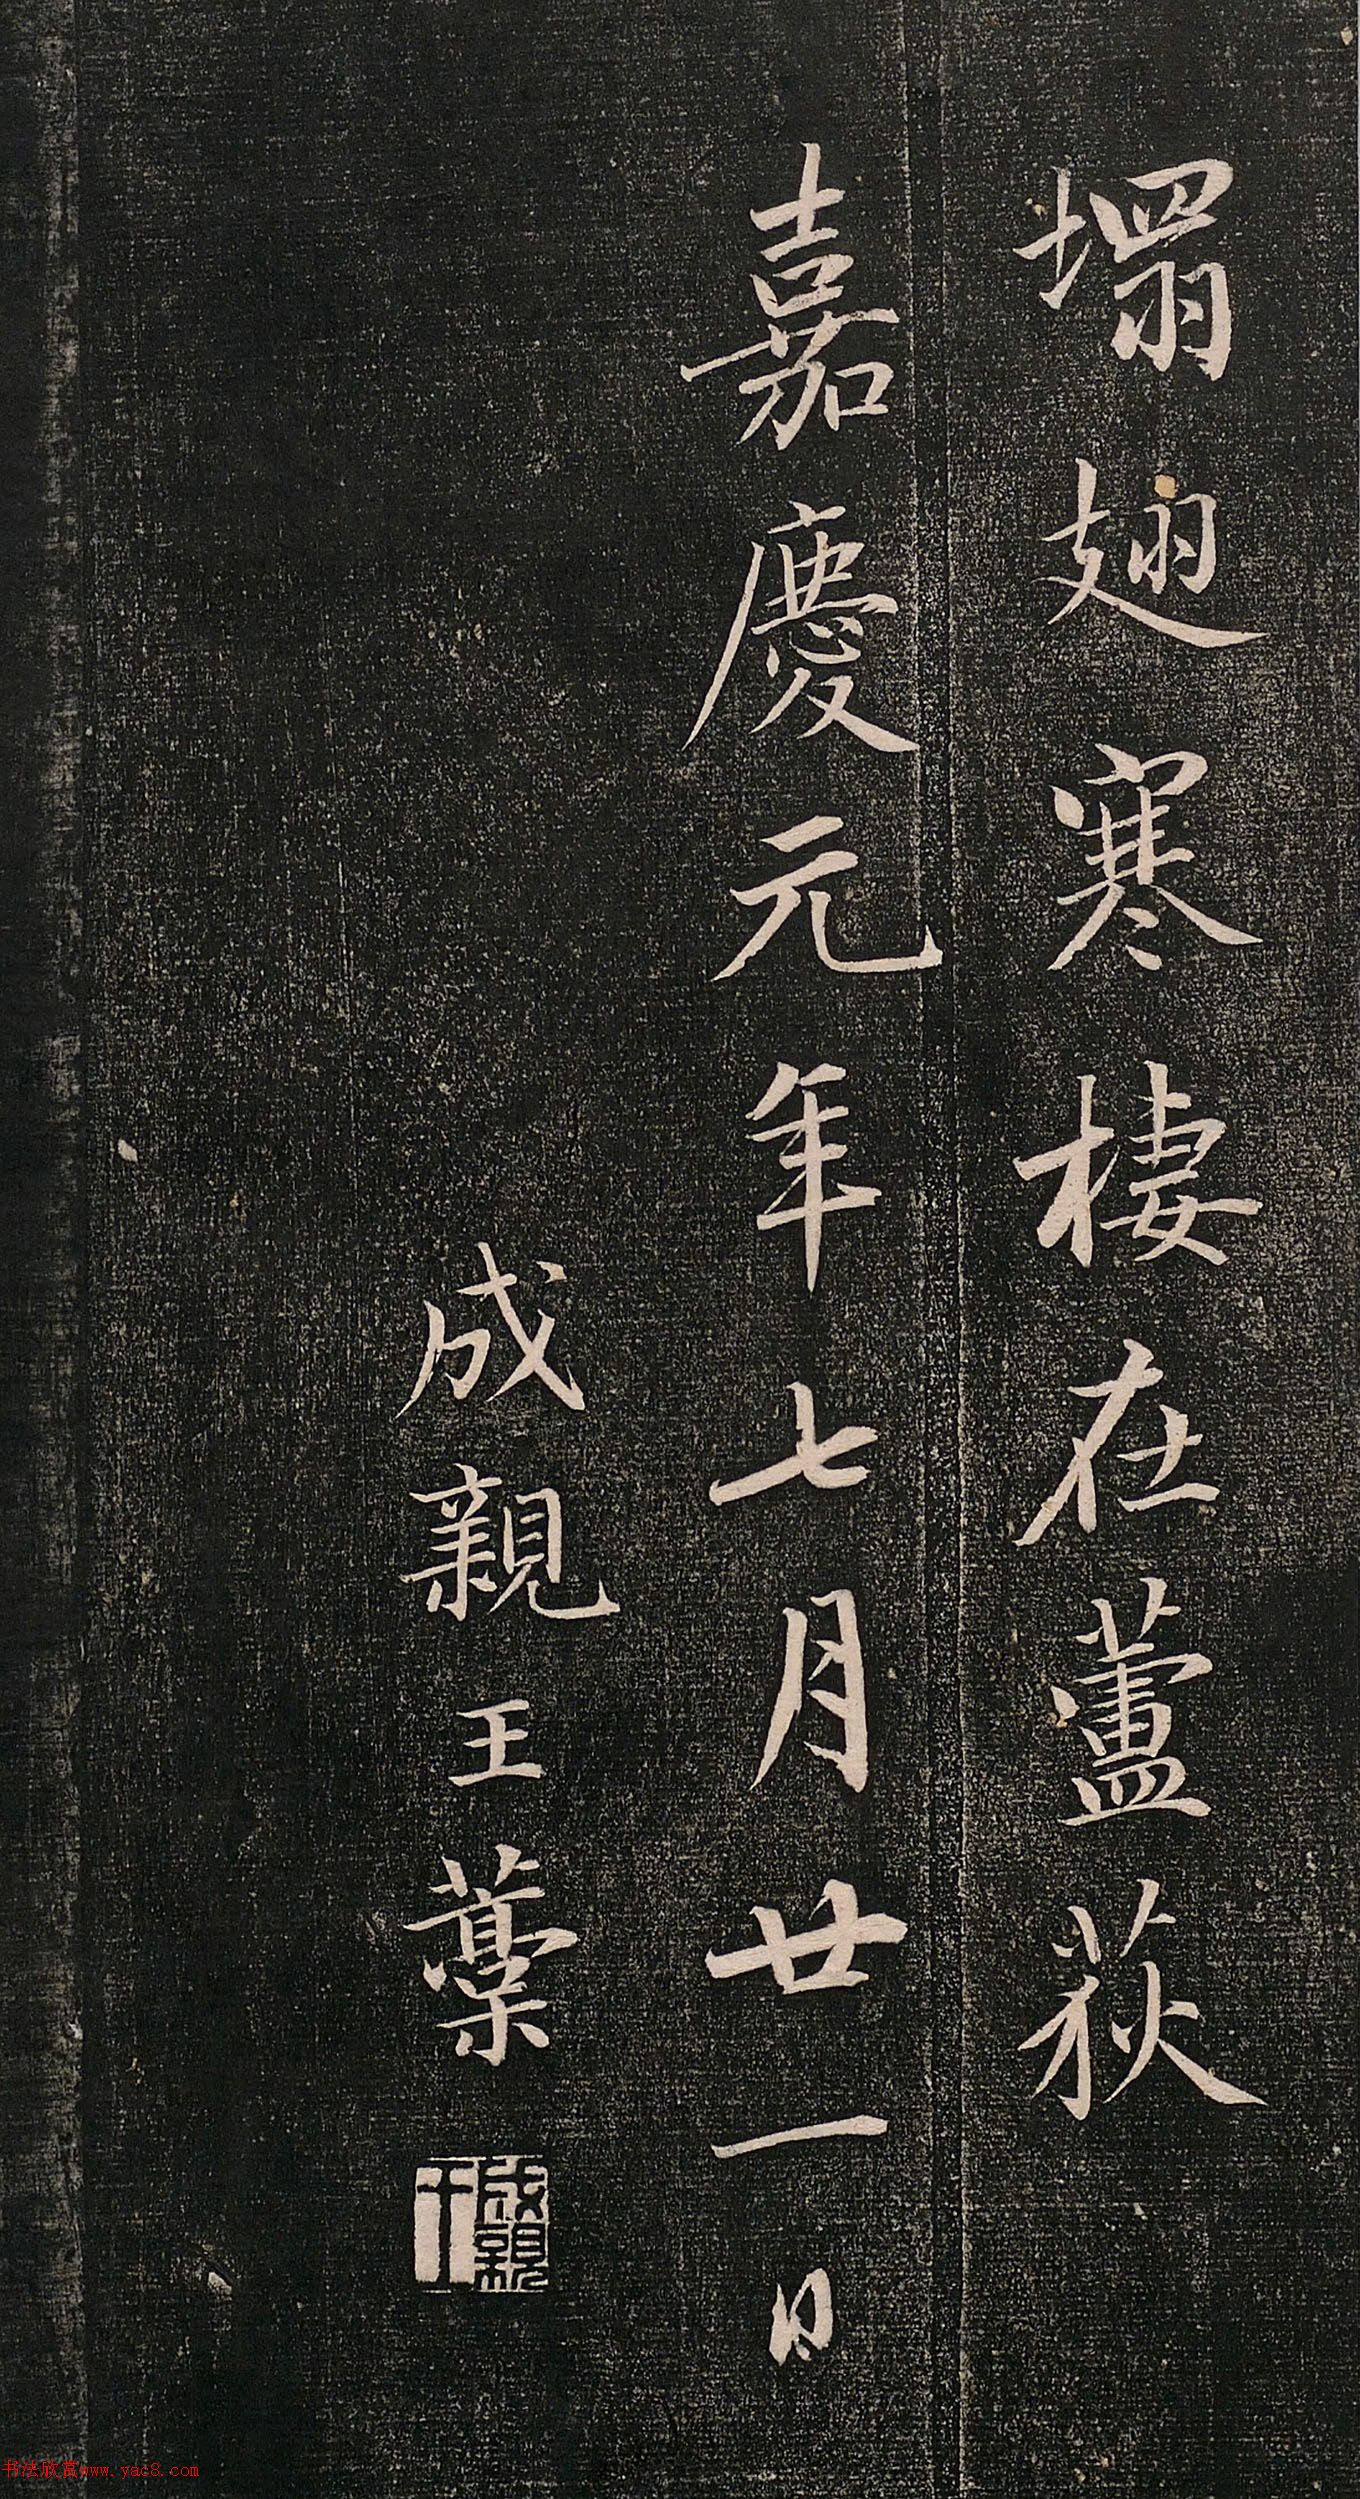 塌翅寒棲在蘆荻
嘉慶元年七月廿一日
成親王藁
成親王
书法欣赏www.yac8.com